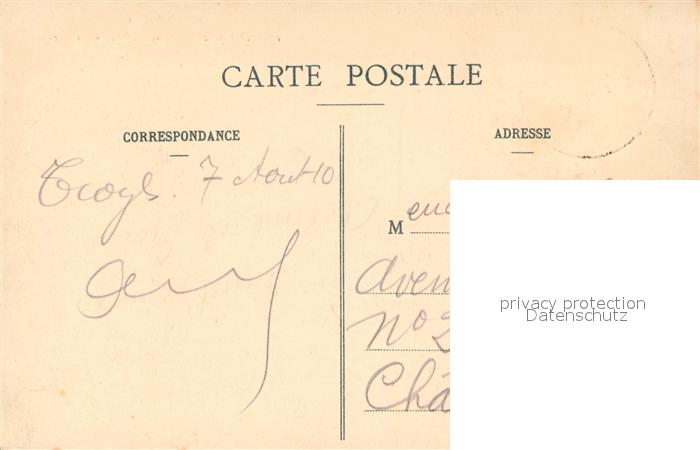 CARTE POSTALE
CORRESPONDANCE
Troyes. 7 Aout 10
ADRESSE
M
Aven
No 2
Châ
privacy protection
Datenschutz